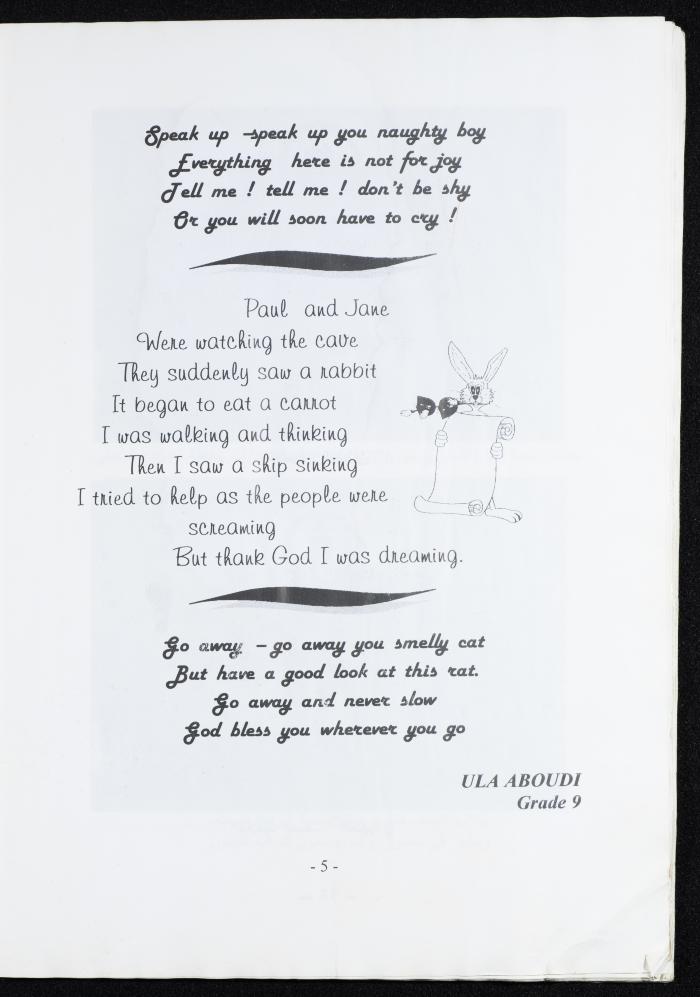 Speak up -speak up you naughty boy
Everything here is not for joy
Tell me ! tell me ! don't be shy
Or you will soon have to cry !
Paul and Jane
Were watching the cave
They suddenly saw a rabbit
It began to eat a carrot
I was walking and thinking
Then I saw a ship sinking
I tried to help as the people were
screaming
But thank God I was dreaming.
Go away - go away you smelly cat
But have a good look at this rat.
Go away and never slow
God bless you wherever you go
ULA ABOUDI
Grade 9
- 5 -